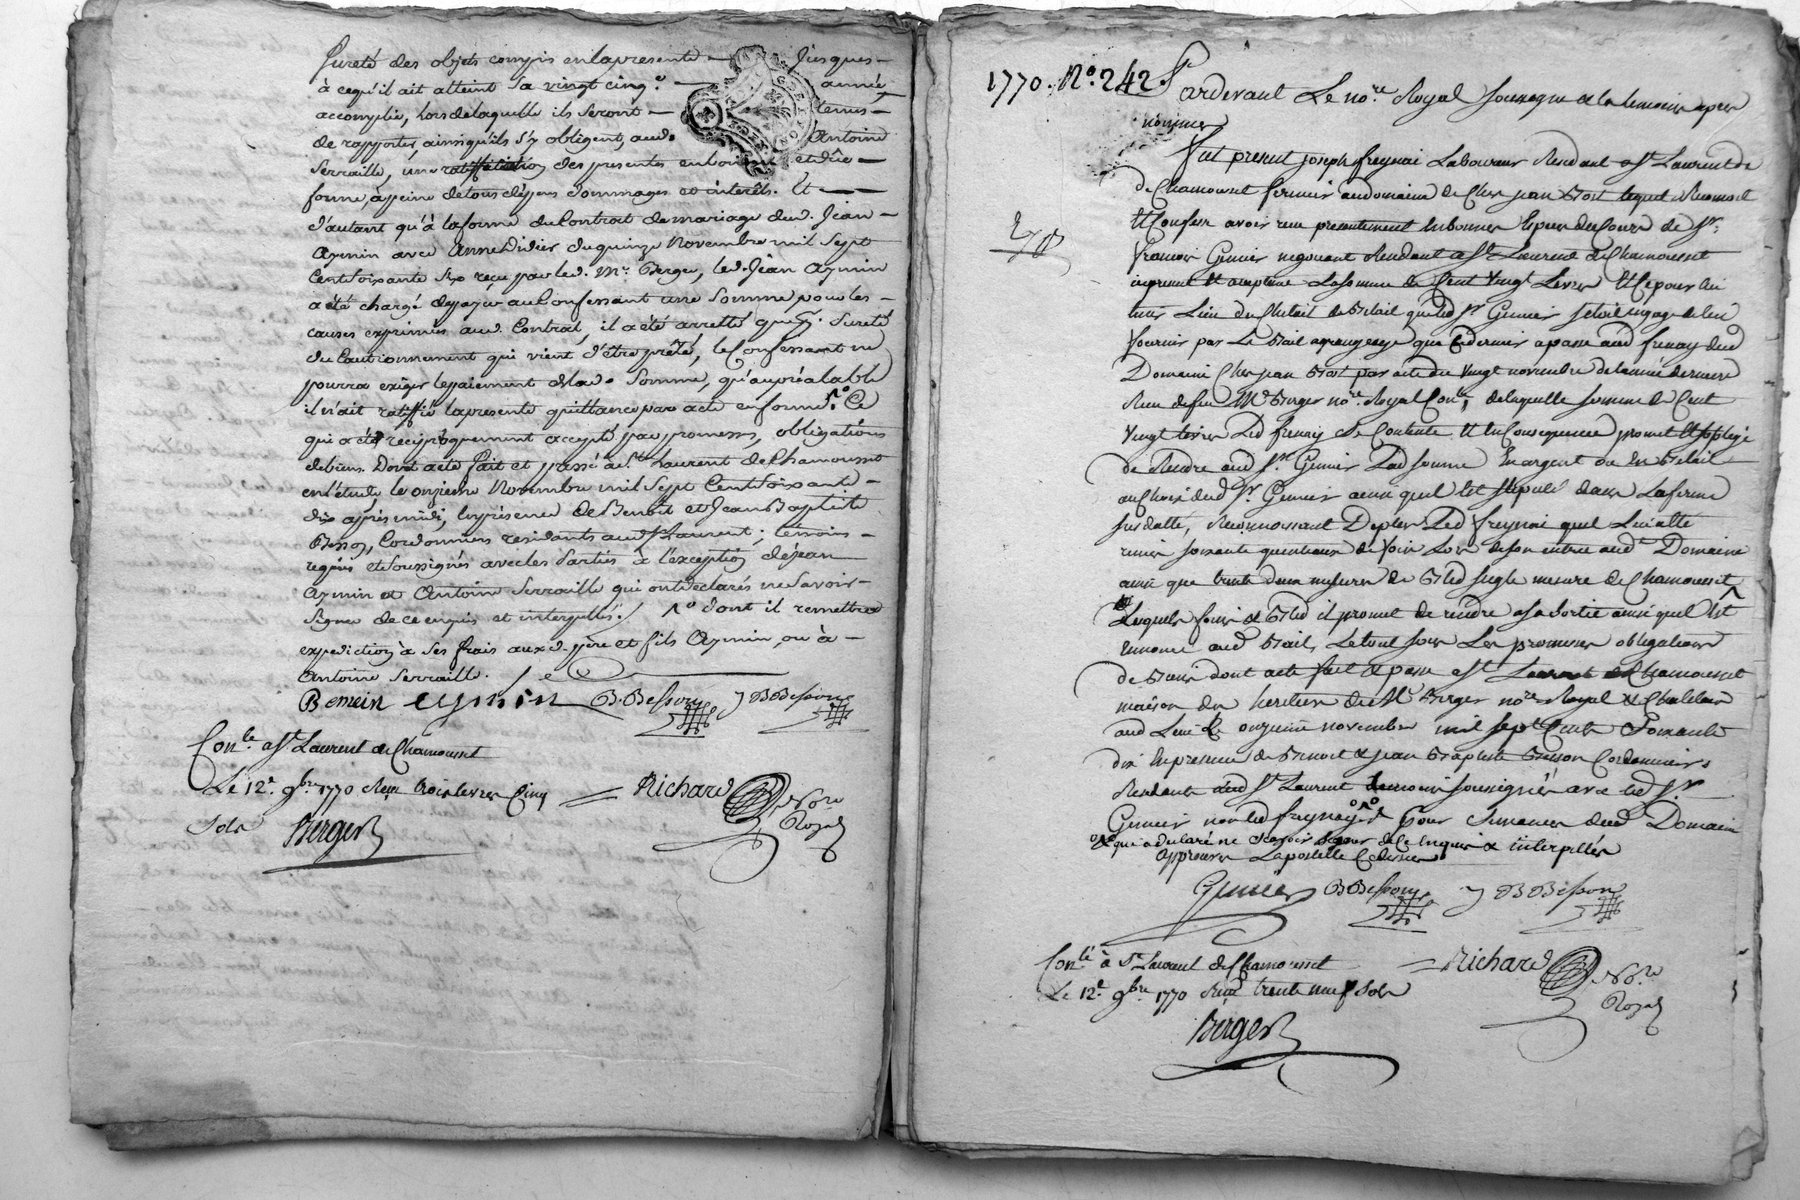 Sureté des objets compris en la presente jusques
à ce qu'il ait atteint sa vingt cinq.e année
accomplie, lors de laquelle ils seront tenus
de rapporter, ainsi qu'ils s'y obligent, aud. Antoine
Serraille, une ratiffication des presentes en bonne et dûe
forme, à peine de tous dépens dommages et intérêts. Et
d'autant qu'à la forme du Contrat de mariage dud. Jean
Aymin avec Anne Didier du quinze Novembre mil Sept
Cent Soixante Six reçu par led. Mre Berger, led. Jean Aymin
a été chargé de payer au Confessant une Somme pour les
causes exprimées aud. Contrat, il a été arretté que Sureté
du Cautionnement qui vient d'être prêté, le Confessant ne
pourra exiger le paiement de lad. Somme, qu'au préalable
il n'ait ratiffié la presente quittance par acte en forme. Ce
qui a été réciproquement accepté par promesses, obligations
de biens. Dont acte fait et passé à St. Laurent de Chamousset
en l'étude le onzieme Novembre mil Sept Cent Soixante
dix après midi, en présence de Benoit et Jean Baptiste
Besson, Cordonniers residants aud. St Laurent; témoins
requis et Soussignés avec les Parties à l'exception de Jean
Aymin et Antoine Serraille qui ont déclarés ne Savoir
Signer de ce enquis et interpellés. dont il remettra
expedition à Ses frais aux d. père et fils Aymin, ou à
Antoine Serraille.
Bemein eymin B. Besson J B Besson
Con.lé a St. Laurent de Chamousset
Le 12.e 9bre 1770 Reçu trois livres Cinq
Sols Berger
Richard No.re
Royal
1770. No. 242. Pardevant Le no.re Royal soussigné & les temoins apres
nommés
fut present joseph freynai Laboureur Residant a St. Laurent de
de Chamousset fermier au domaine de Cher jean Brot lequel Reconnoit
Et Confesse avoir reçu presentement en bonnes Especes de Cours de Sr.
françois Grenier negociant Residant a St. Laurent de Chamousset
icy present & acceptant La somme de Cent vingt Livres Et ce pour lui
tenir Lieu du Chetail de Betail que led Sr. Grenier s'etoit engagé de lui
fournir par Le Bail a grangeage que Ce dernier a passé aud freynay dud
Domaine Cher jean Brot par acte du vingt novembre de lannée derniere
Reçu de feu Me. Berger no.re Royal Con.lé, de laquelle somme de Cent
vingt livres Led freynay se Contente Et En Consequence promet Et s'oblige
de Rendre aud Sr. Grenier Lad somme En argent ou En Betail
au Choix dud Sr. Grenier ainsi quil est stipulé dans La ferme
sus datte, Reconnoissant De plus Led freynai quil Lui a été
remis soixante quintaux de foin Lors de son entrée aud Domaine
ainsi que trente deux mesures de Bled seigle mesure de Chamousset
Lesquels foin & Bled il promet de rendre a sa Sortie ainsi quil Est
Ennoncé aud Bail, Le tout sous Les promesses obligations
de Biens dont acte fait & passé a St. Laurent de Chamousset
maison des heritiers de Me. Berger no.re Royal & Chatelain
aud Lieu Le onzieme novembre mil sept Cent Soixante
dix En presence de Benoit & jean Baptiste Besson Cordonniers
Residants aud St. Laurent temoins soussignés avec led Sr.
Grenier non led freynay pour Jouissance dud Domaine
& que a declaré ne scavoir signer de Ce Enquis & interpellés
approuvés La postille Ci dessus
Grenier B. Besson J B Besson
Con.lé à St. Laurent de Chamousset
Le 12.e 9bre 1770 Reçu trente neuf Sols
Berger
Richard No.re
Royal